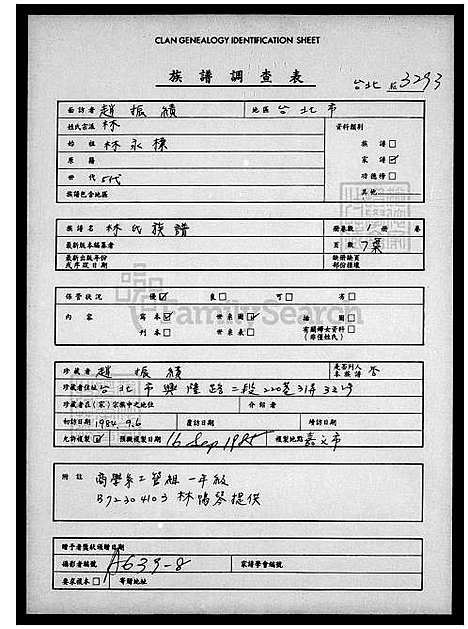 CLAN GENEALOGY IDENTIFICATION SHEET
族譜調查表
台北 3293
面訪者 趙振績 地區 台北市
姓氏宗派 林 資料類別
始祖 林永棟 族譜□
原籍 家譜☑
世代 5代 功德榜□
族譜包含地區 其他
族譜名 林氏族譜 冊卷數 1 冊 卷
最新版本編纂者 頁數 7葉
最新出版年份 缺冊缺頁
或序跋日期 部份損壞
保管狀況 優☑ 良□ 可□ 劣□
內容 寫本☑ 世系圖☑ 插圖□ 有關婦女資料□
刊本□ 世系表□ (非僅姓氏)
FamilySearch
珍藏者 趙振績 是否列入本族譜 否
珍藏者住址 台北市興隆路二段220巷31弄32號
珍藏者在(家)宗族中之地位 介紹者
初訪日期 1984.9.6 覆訪日期 績訪日期
允許複製☑ 預擬複製日期 16 Sep 1985 複製地點 嘉义市
附註 商學系工管組一年級
B72304103 林陽琴提供
贈予者獎狀頒贈日期
攝影者編號 A639-8 家譜學會編號
要求複本□ 寄贈地址